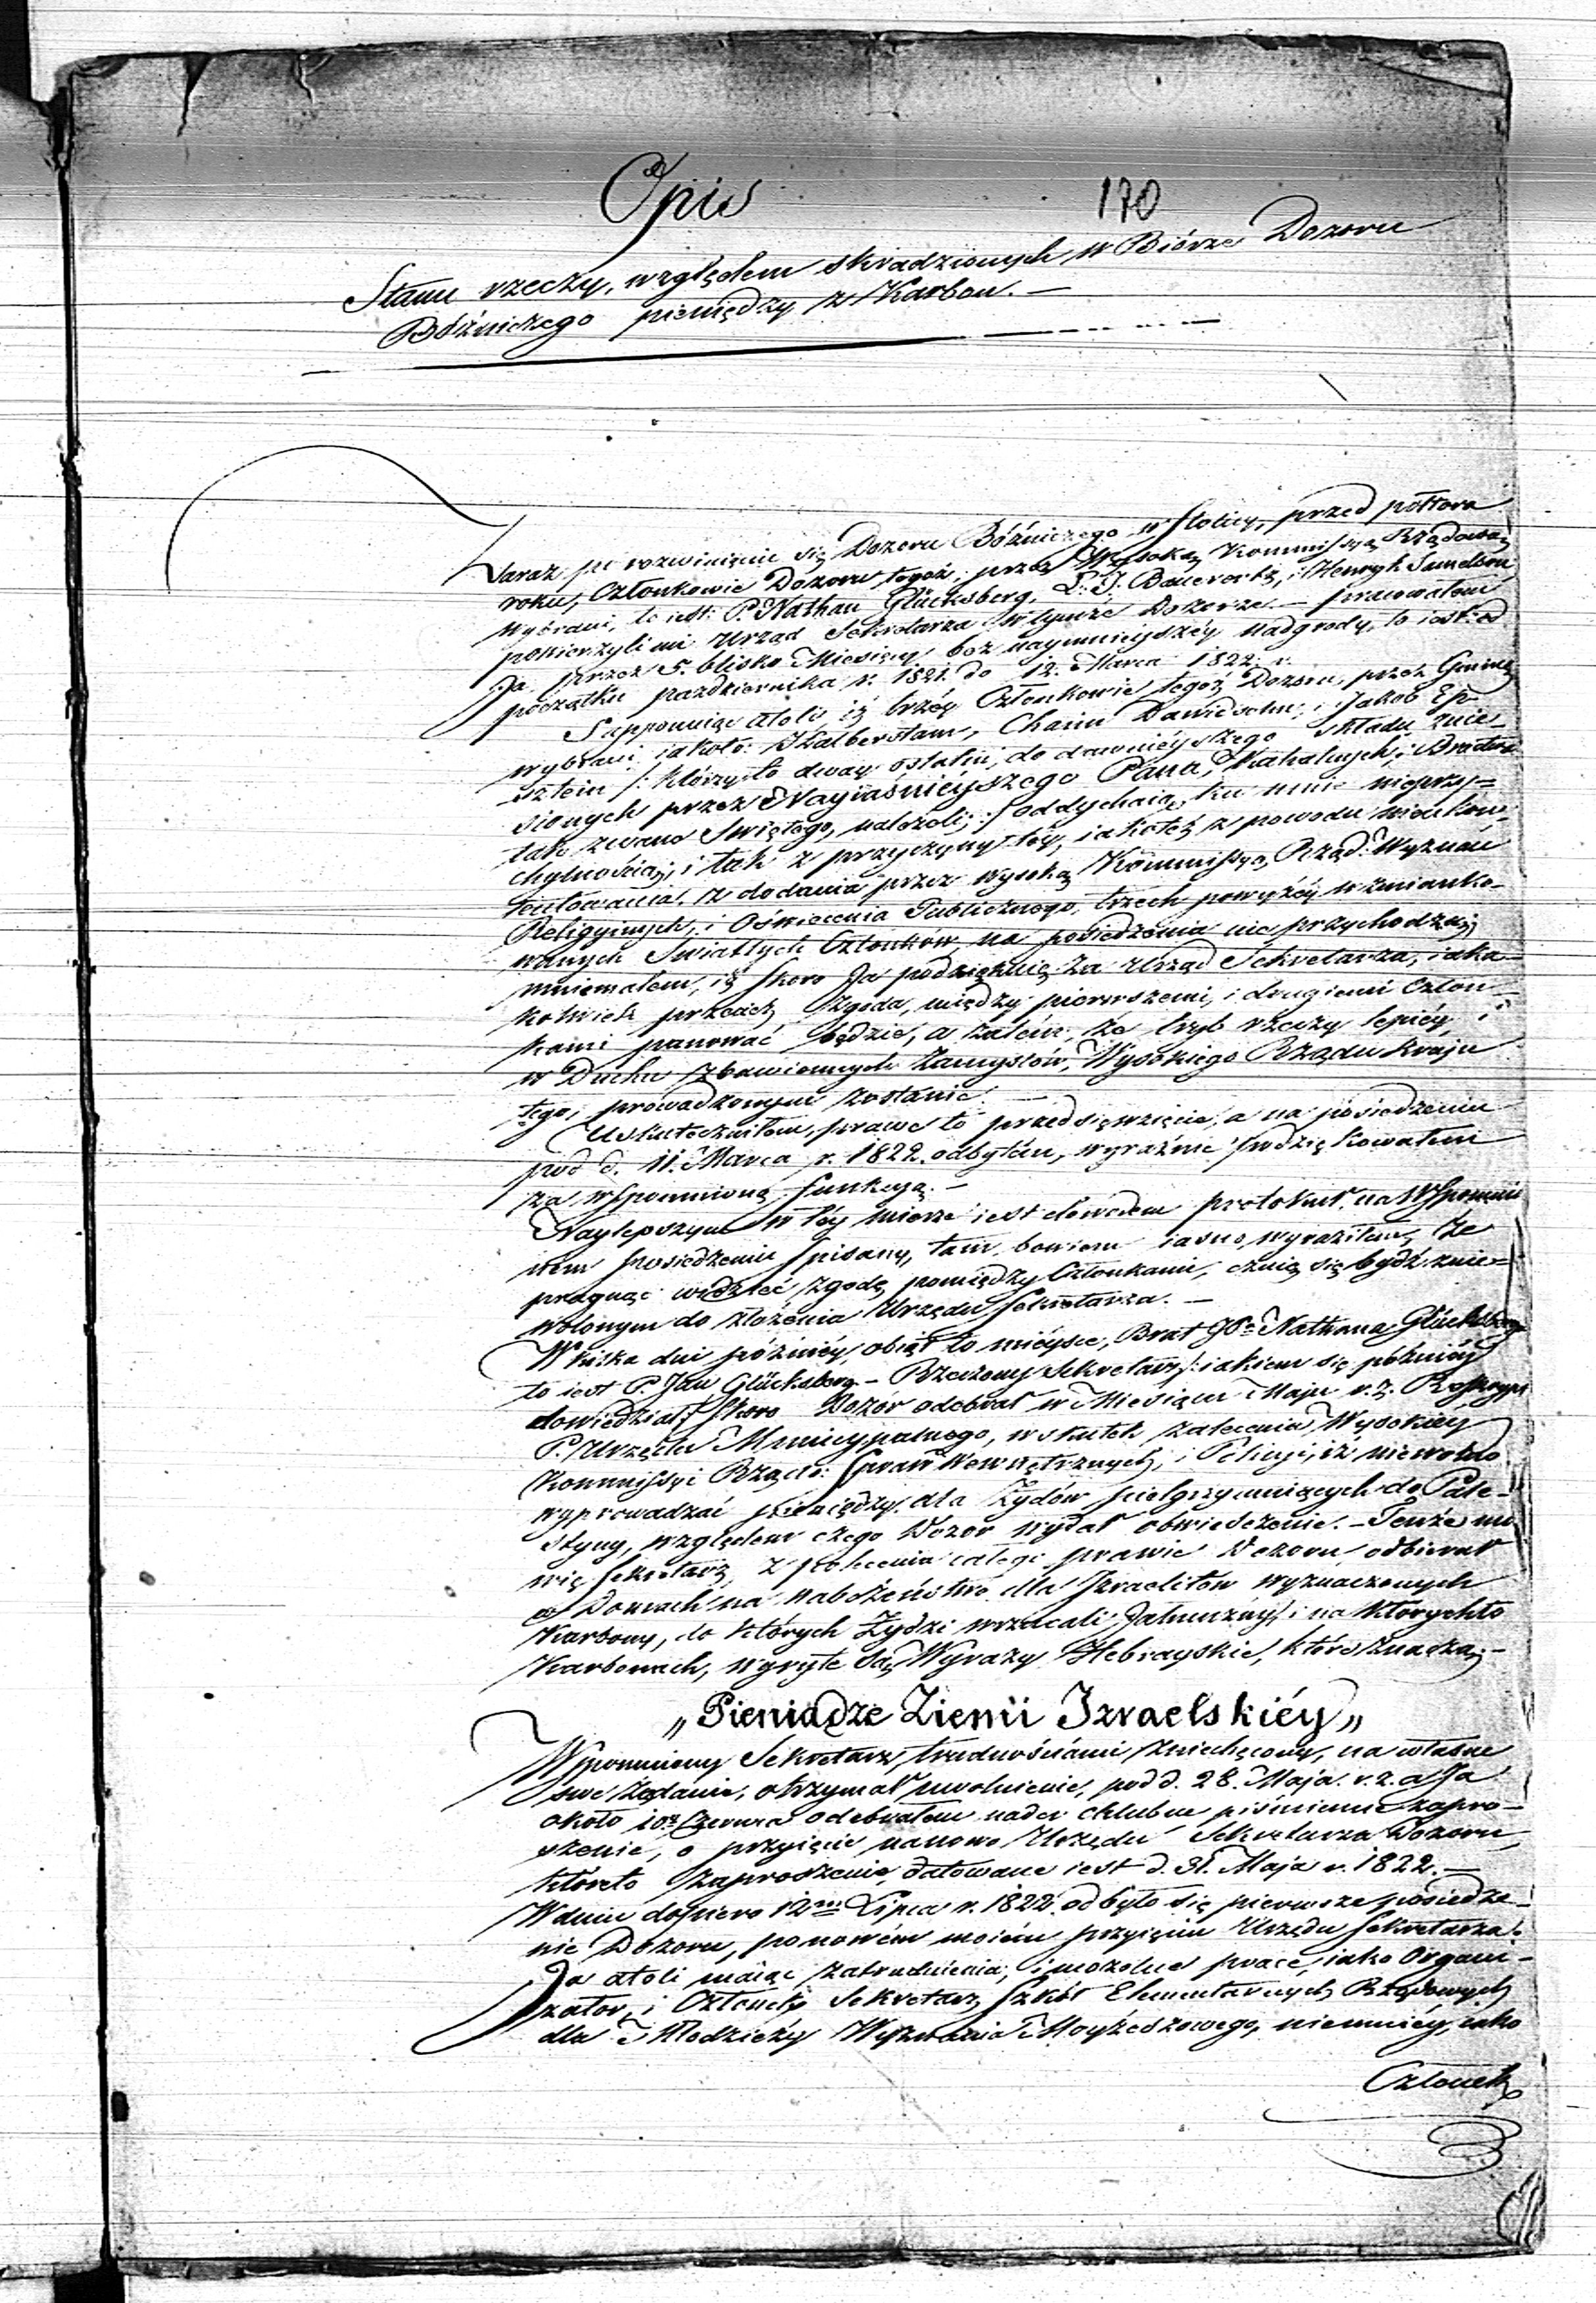 Opis
170
Stanu rzeczy, względem skradzionych w Biórze Dozoru
Bóżniczego pieniędzy z Karbon. —
Zaraz po rozwinięciu się Dozoru Bóżniczego w Stolicy, przed półtora
roku, Członkowie Dozoru tegoż, przez Wysoką Kommissyą Rządową
wybrani, to iest: P. Nathan Glücksberg, L. J. Bauerertz, i Henryk Samelson
powierzyli mi Urząd Sekretarza w tymże Dozorze. — pracowałem
Ja przez 5. blisko Miesięcy bez naymnieyszéy nadgrody, to iest od
początku pazdziernika r. 1821. do 12. Marca 1822. r.
Supponuiąc atoli iż trzéy Członkowie tegoż Dozoru, przez Gminę
wybrani, jakoto: Halberstam, Chaim Dawidsohn, i Jakob Ep-
sztein /: którzyto dway ostatni, do dawnieyszego składu znie-
sionych przez Nayiaśnieyszego Pana, Kahalnych, i Bractwa
tak zwano Swiętego, należeli; :/ oddychaią ku mnie nieprzy=
chylnością, i tak z przyczyny téy, iakoteż z powodu nieukon-
tentowania, z dodania przez wysoką Kommissyą Rząd. Wyznań
Religiynych, i Oświecenia Publicznego, trzech powyżéy wzmianko-
wanych Swiatłych Członków, na posiedzenia nie przychodzą;
mniemałem, iż skoro Ja podziękuię za Urząd Sekretarza, iaka-
kolwiek przecież zgoda, między pierwszemi, i drugiemi Człon-
kami panować będzie, a zatém, że tryb rzeczy lepiéy, i
w Duchu zbawiennych Zamysłów, Wysokiego Rządu kraju
tego, prowadzonym zostanie. —
Uskuteczniłem, prawe to przedsięwzięcie, a na posiedzeniu
pod d. 11. Marca r. 1822. odbytém, wyraźnie podziękowałem
za wspomnioną funkcyą. —
Naylepszym w téy mierze iest dowodem protokuł, na Wspomnio
nem posiedzeniu spisany, tam bowiem iasno wyraziłem, że
pragnąc widzieć zgodę pomiędzy Członkami, czuię się bydź znie=
wolonym do złożenia Urzędu Sekretarza. —
W kilka dni późniéy, obiął to mieysce, Brat JPa Nathana Glücksberg
to iest P. Jan Glücksberg. — Rzeczony Sekretarz /: iakiem się późniéy
dowiedział :/ skoro Dozór odebrał w Miesiącu Maju r. z. Reskrypt
P. Urzędu Municypalnego, w skutek zalecenia, Wysokiéy
Kommissyi Rządo: Spraw Wewnętrznych, i Policyi, iż niewolno
wyprowadzać pieniędzy dla Żydów pielgrzymuiących do Pale-
styny, względem czego Dozor wydał obwieszczenie. — Tenże mó-
wię Sekretarz, z polecenia całego prawie Dozoru odbierał
w Domach na nabożeństwo dla Izraelitów wyznaczonych
Karbony, do których Żydzi wrzucali Jałmużny, i na którychto
Karbonach, wyryte są Wyrazy Hebrayskie, które znaczą: —
„Pieniądze Ziemi Izraelskiéy„
Wspomniony Sekretarz, trudnościami zniechęcony, na własne
swe żądanie, otrzymał uwolnienie, pod d. 28. Maja. r. z. a Ja
około 10go Czerwca odebrałem nader chlubne piśmienne zapro-
szenie, o przyięcie nanowo Urzędu Sekretarza Dozoru,
któreto zaproszenie, datowane iest d. 31. Maja r. 1822. —
W dniu dopiero 12m Lipca r. 1822. odbyło się pierwsze posiedze-
nie Dozoru, ponowém moiém przyięciu Urzędu Sekretarza.
Ja atoli maiąc zatrudnienia, i mozolne prace, iako Organi-
zator, i Członek Sekretarz Szkół Elementarnych Rządowych
dla Młodzieży Wyznania Moyżeszowego, niemniéy, iako
Członek